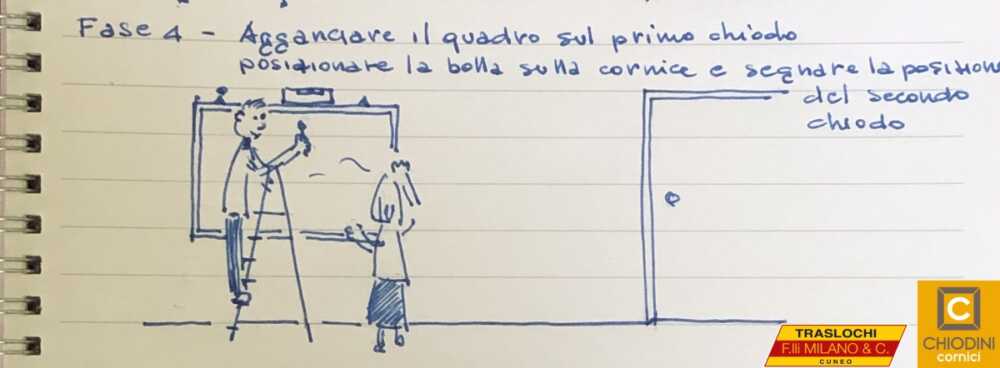 Fase 4 - Agganciare il quadro sul primo chiodo
posizionare la bolla sulla cornice e segnare la posizione
del secondo
chiodo
TRASLOCHI
F.lli MILANO & C.
CUNEO
C
CHIODINI
cornici